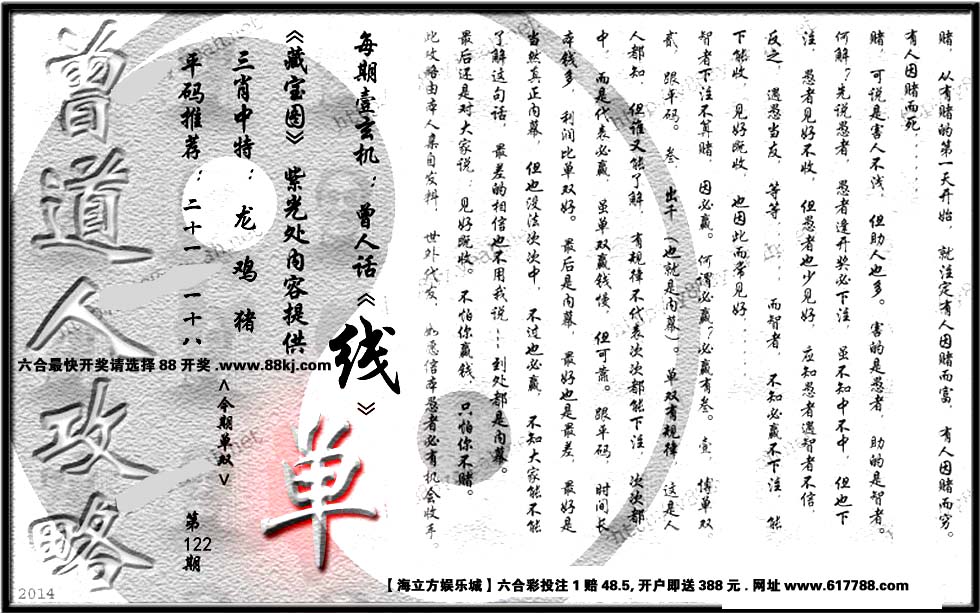 赌，从有赌的第一天开始，就注定有人因赌而富，有人因赌而穷。
有人因赌而死．．．．．．
赌，可说是害人不浅，但助人也多。害的是愚者，助的是智者。
何解？先说愚者，愚者逢开奖必下注，虽不知中不中，但也下
注，愚者见好不收，但愚者也少见好，应知愚者遇智者不信，
反之，遇愚当友，等等．．．．．．而智者，不知必赢不下注，能
下能收，见好既收，也因此而常见好．．．．．．
智者下注不算赌，因必赢。何谓必赢？必赢有叁。壹，博单双，
贰，跟平码。叁，出千（也就是内幕）。单双有规律，这是人
人都知，但谁又能了解，有规律不代表次次都能下注，次次都
中，而是代表必赢，虽单双赢钱慢，但可靠。跟平码，时间长，
本钱多，利润比单双好。最后是内幕，最好也是最差，最好是
当然真正内幕，但也没法次次中，不过也必赢，不知大家能不能
了解这句话，最差的相信也不用我说---到处都是内幕。
最后还是对大家说：见好既收。不怕你赢钱，只怕你不赌。
此攻略由本人亲自发料，世外代友，如悉信本愚者必有机会收车。
每期壹玄机：曾人话《线》
《藏宝图》紫光处内容提供
三肖中特：龙鸡猪
平码推荐：二十一 一十八
<今期单双>
单
第122期
曾道人攻略
六合最快开奖请选择88开奖.www.88kj.com
【海立方娱乐城】六合彩投注1赔48.5,开户即送388元.网址www.617788.com
2014